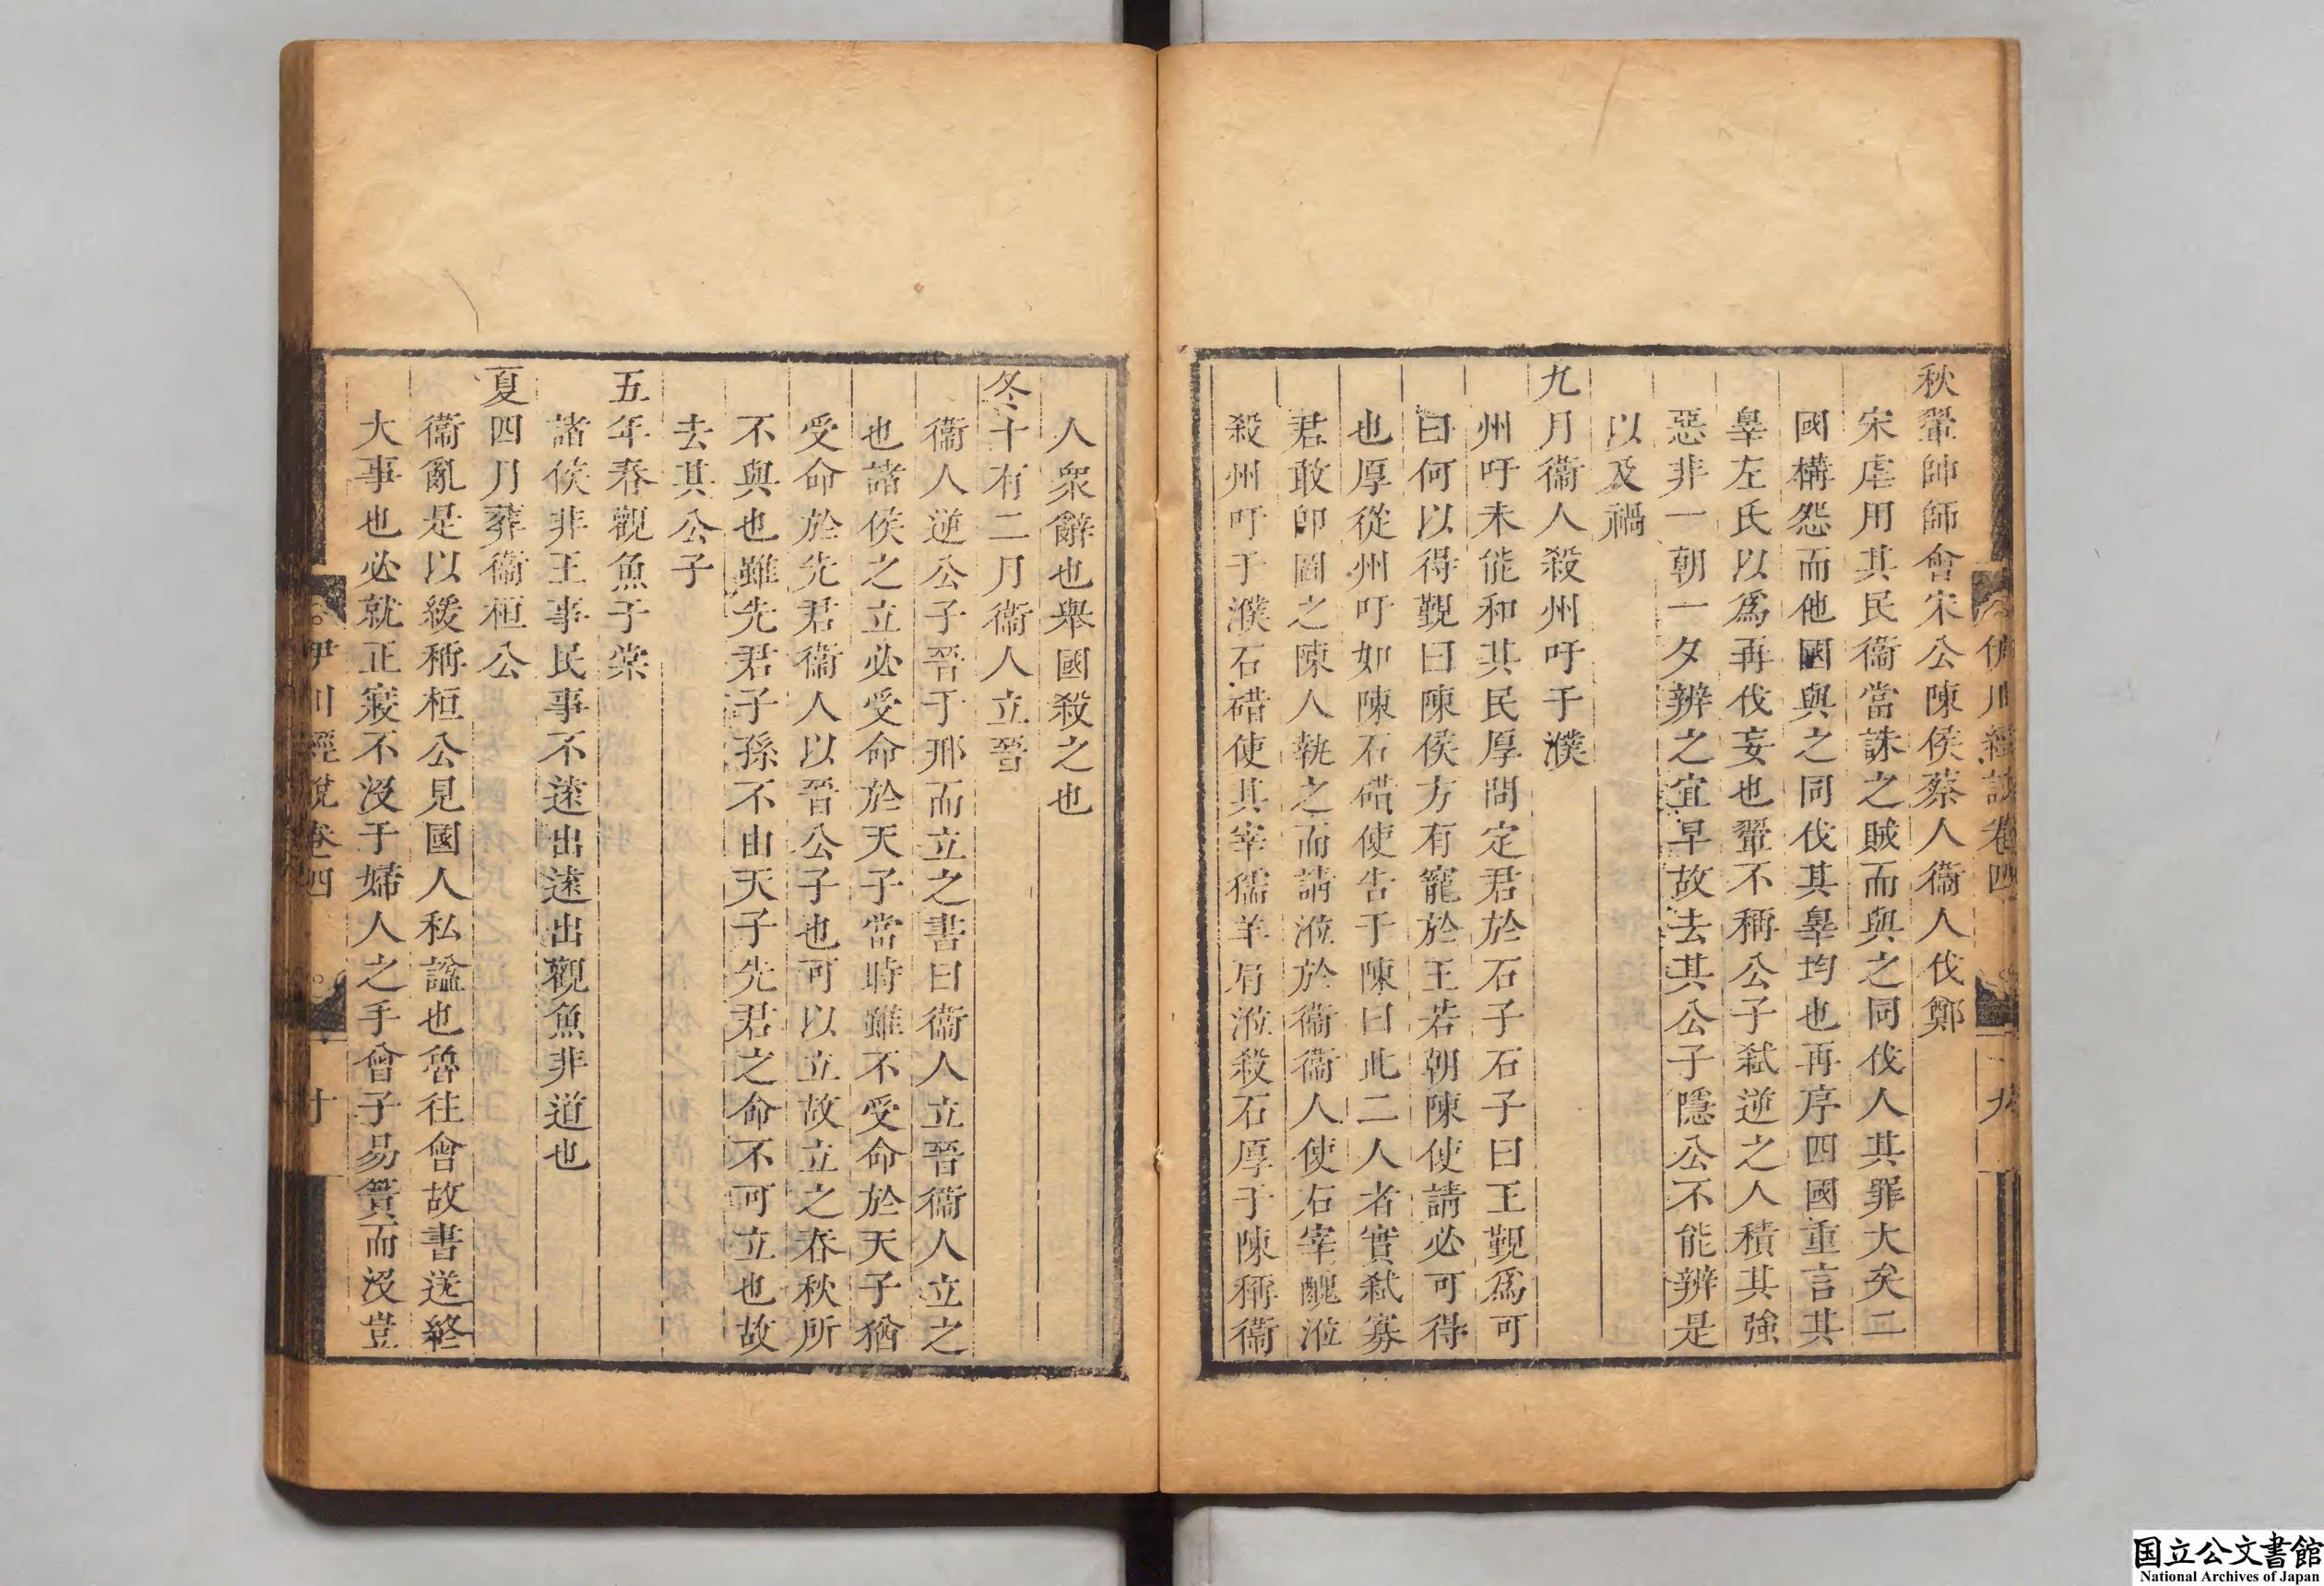 秋翬帥師會宋公陳侯蔡人衞人伐鄭
宋虐用其民衞當誅之賊而與之同伐人其罪大矣二
國構怨而他國與之同伐其辠均也再序四國重言其
辠左氏以爲再伐妄也翬不稱公子弑逆之人積其強
惡非一朝一夕辨之宜早故去其公子隱公不能辨是
以及禍
九月衞人殺州吁于濮
州吁未能和其民厚問定君於石子石子曰王覲爲可
曰何以得覲曰陳侯方有寵於王若朝陳使請必可得
也厚從州吁如陳石碏使告于陳曰此二人者實弑寡
君敢卽圖之陳人執之而請涖於衞衞人使右宰醜涖
殺州吁于濮石碏使其宰獳羊肩涖殺石厚于陳稱衞
伊川經說卷四
九
人衆辭也舉國殺之也
冬十有二月衞人立晉
衞人逆公子晉于邢而立之書曰衞人立晉衞人立之
也諸侯之立必受命於天子當時雖不受命於天子猶
受命於先君衞人以晉公子也可以立故立之春秋所
不與也雖先君子孫不由天子先君之命不可立也故
去其公子
五年春觀魚于棠
諸侯非王事民事不遠出遠出觀魚非道也
夏四月葬衞桓公
衞亂是以緩稱桓公見國人私諡也魯往會故書送終
大事也必就正寢不沒于婦人之手曾子易簀而沒豈
伊川經說卷四
十
国立公文書館
National Archives of Japan